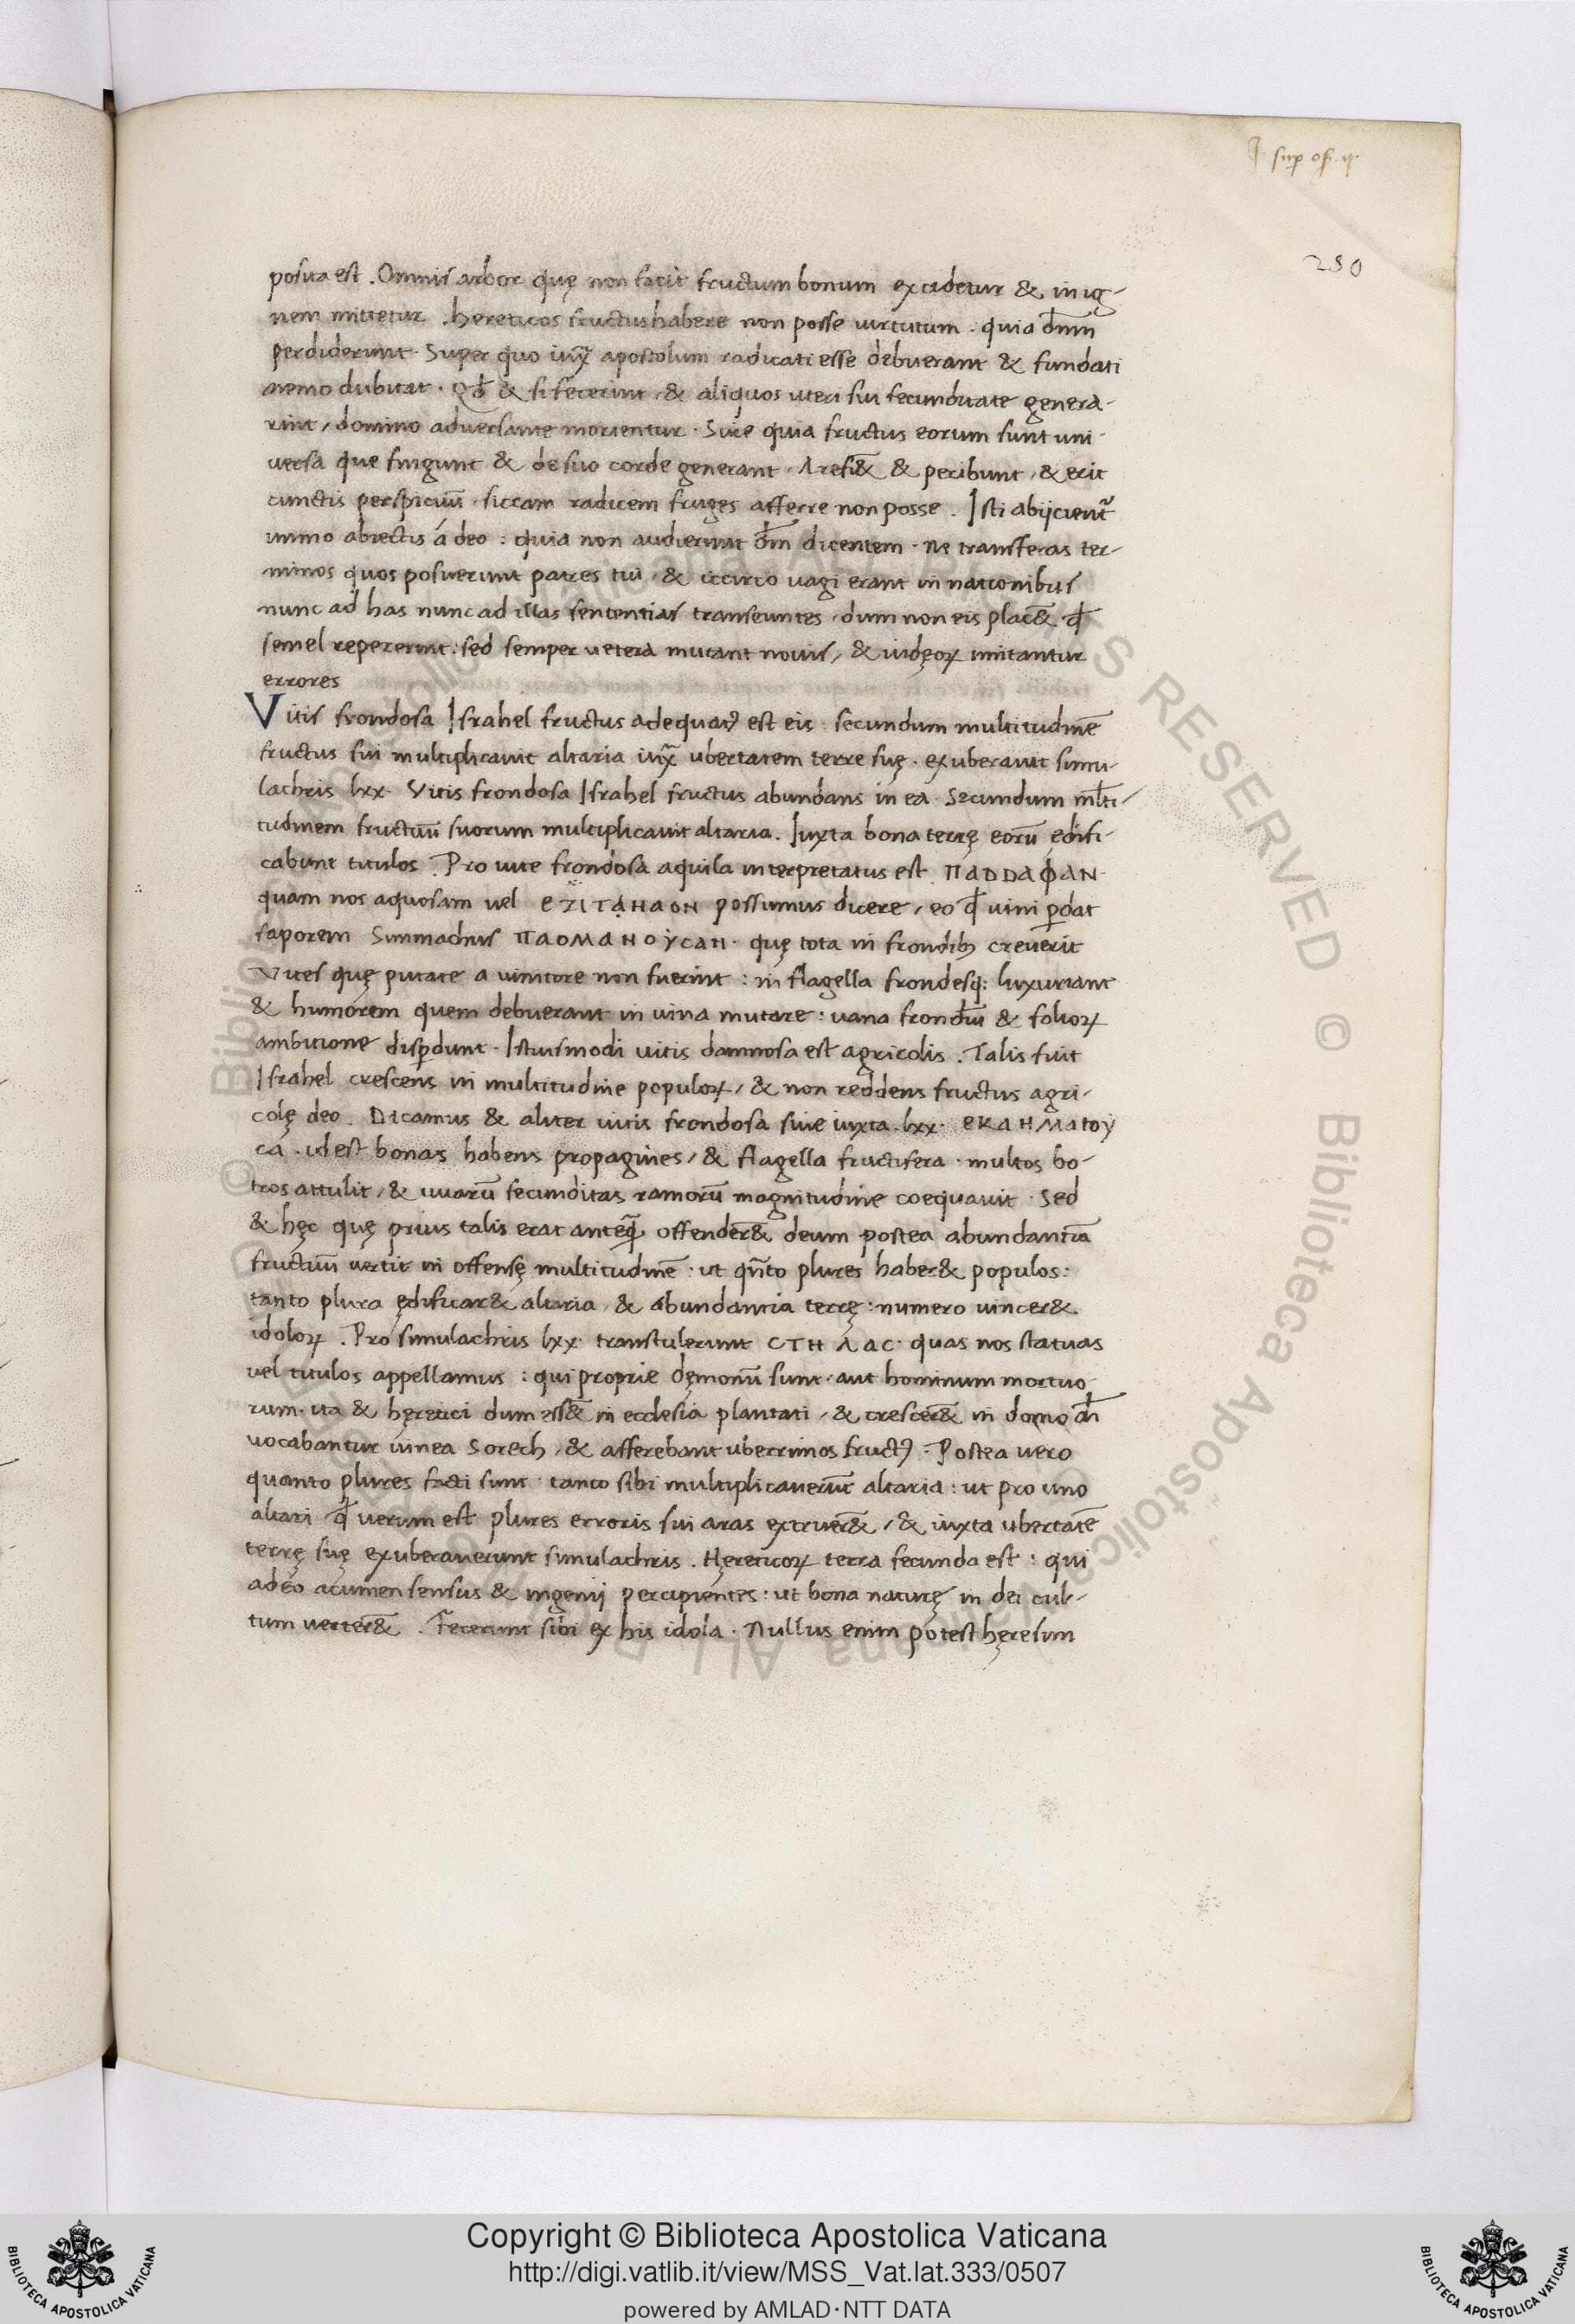 sup os. ii
250
posita est . Omnis arbor quę non facit fructum bonum excidetur & in ig-
nem mittetur . hereticos fructus habere non posse uirtutum . quia dn̄m
perdiderunt . Super quo iux̄ apostolum radicati esse debuerant & fundati
nemo dubitat . Qđ & si fecerint , & aliquos uteri sui fecunditate genera-
rint , domino aduersante morientur . Siue quia fructus eorum sunt uni-
uersa que fingunt & de suo corde generant . Aresc̄& & peribunt , & erit
cunctis perspicuū . siccam radicem fruges afferre non posse . Isti abijcient᷑
immo abiectis á deo : quia non audierunt dn̄m dicentem . ne transferas ter-
minos quos posuerunt patres tui , & iccirco uagi erant in nationibus
nunc ad has nunc ad illas sententias transeuntes , dum non eis plac& . qđ
semel repererint : sed semper uetera mutant nouis , & iudęoꝝ imitantur
errores
Vitis frondosa Israhel fructus adequatꝰ est eis : secundum multitudinē
fructus sui multiplicauit altaria iux̄ ubertatem terre suę . exuberauit simu-
lachris lxx . Vitis frondosa Israhel fructus abundans in ea . Secundum ml̄ti-
tudinem fructuū suorum multiplicauit altaria . Iuxta bona terrę eorū edifi-
cabunt titulos . Pro uite frondosa aquila interpretatus est . ΠΑDDΑΦΑΝ
quam nos aquosam uel ΕΖΙΤΑΗΛΟΝ possumus dicere , eo qđ uini ꝑdat
saporem Simmachus ΠΑΟΜΑΝΟΥCΑΝ . quę tota in frondibꝫ creuerit
Vites quę putate a uinitore non fuerint : in flagella frondesqꝫ luxuriant
& humorem quem debuerant in uina mutare : uana frondiū & folioꝝ
ambitione disꝑdunt . Istiusmodi uitis damnosa est agricolis . Talis fuit
Israhel crescens in multitudine populoꝝ , & non reddens fructus agri-
colę deo . Dicamus & aliter uitis frondosa siue iuxta lxx . ΕΚΛΗΜΑΤΟΥ
CΑ . id est bonas habens propagines , & flagella fructifera . multos bo-
tros attulit , & uuarū fecunditas ramorū magnitudine coequauit . Sed
& hęc quę prius talis erat anteq̄ offender& deum postea abundantiā
fructuū uertit in offensę multitudinē : ut qn̄to plures haber& populos :
tanto plura ędificar& altaria , & abundantia terrę : numero uincer&
idoloꝝ . Pro simulachris lxx . transtulerunt CΤΗΛΑC . quas nos statuas
uel titulos appellamus : qui proprie dęmonū sunt . aut hominum mortuo
rum . ita & hęretici dum ess& in ecclesia plantati , & crescer& in domo dn̄i
uocabantur uinea Sorech , & afferebant uberrimos fructꝰ . Postea uero
quanto plures facti sunt . tanto sibi multiplicauerūt altaria : ut pro uno
altari qđ uerum est plures erroris sui aras extruer& , & iuxta ubertatē
terrę suę exuberauerunt simulachris . Hęreticoꝝ terra fecunda est : qui
adeo acumen sensus & ingenij percipientes : ut bona naturę in dei cul-
tum uerter& . Fecerunt sibi ex his idola . Nullus enim potest hęresim
© Biblioteca Apostolica Vaticana ALL RIGHTS RESERVED
Copyright © Biblioteca Apostolica Vaticana
http://digi.vatlib.it/view/MSS_Vat.lat.333/0507
powered by AMLAD·NTT DATA
BIBLIOTECA APOSTOLICA VATICANA
BIBLIOTECA APOSTOLICA VATICANA